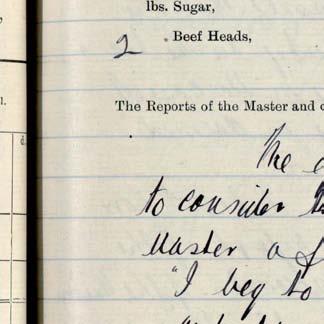 lbs. Sugar,
2 Beef Heads,
The Reports of the Master and
The
to consider
Master a
"I beg to